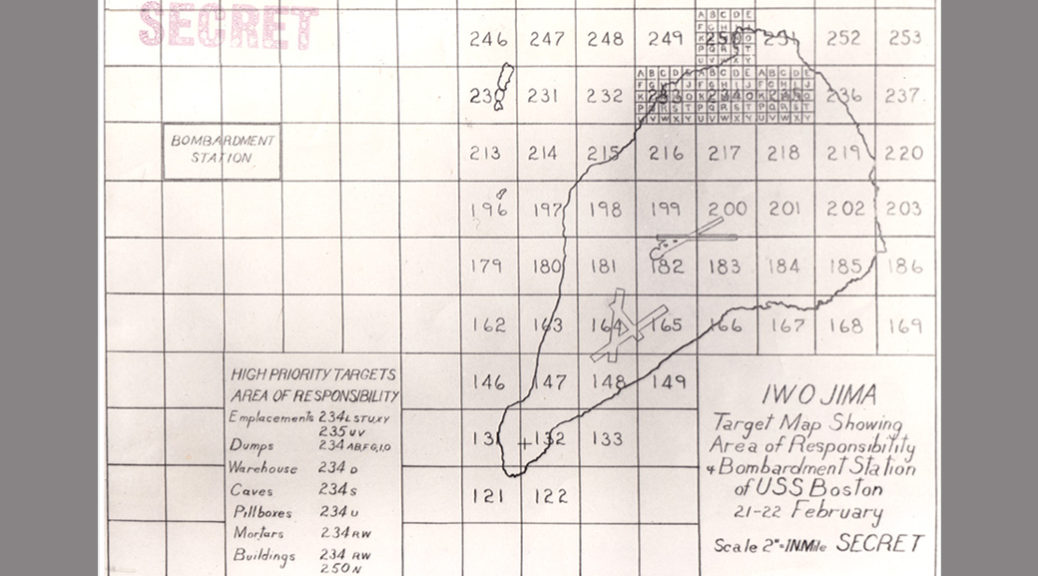 SECRET
A B C D E
246 247 248 249 250 251 252 253
P Q R S T
U V W X Y
A B C D E A B C D E A B C D E
230 231 232 233 234 235 236 237
P Q R S T P Q R S T P Q R S T
U V W X Y U V W X Y U V W X Y
BOMBARDMENT
STATION
213 214 215 216 217 218 219 220
196 197 198 199 200 201 202 203
179 180 181 182 183 184 185 186
162 163 164 165 166 167 168 169
146 147 148 149
131 132 133
121 122
HIGH PRIORITY TARGETS
AREA OF RESPONSIBILITY
Emplacements 234L STUXY
235 UV
Dumps 234 AB,F,G,I,O
Warehouse 234 D
Caves 234 S
Pillboxes 234 U
Mortars 234 RW
Buildings 234 RW
250 N
IWO JIMA
Target Map Showing
Area of Responsibility
& Bombardment Station
of USS Boston
21-22 February
Scale 2"=1N.Mile SECRET